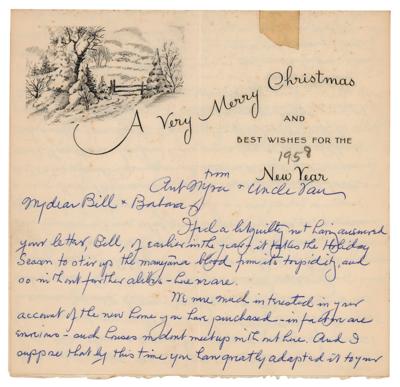 A Very Merry Christmas
AND
BEST WISHES FOR THE
1958
New Year
from
Aunt Myra + Uncle Van
My dear Bill + Barbara
I feel a bit guilty not having answered
your letter, Bill, of earlier in the year, it takes the Holiday
Season to stir up the manyana blood from its torpidity, and
so without further alibis - here we are.
We are much interested in your
account of the new home you have purchased - in fact we are
envious - such houses we dont meet up with out here. And I
suppose that by this time you have greatly adapted it to your